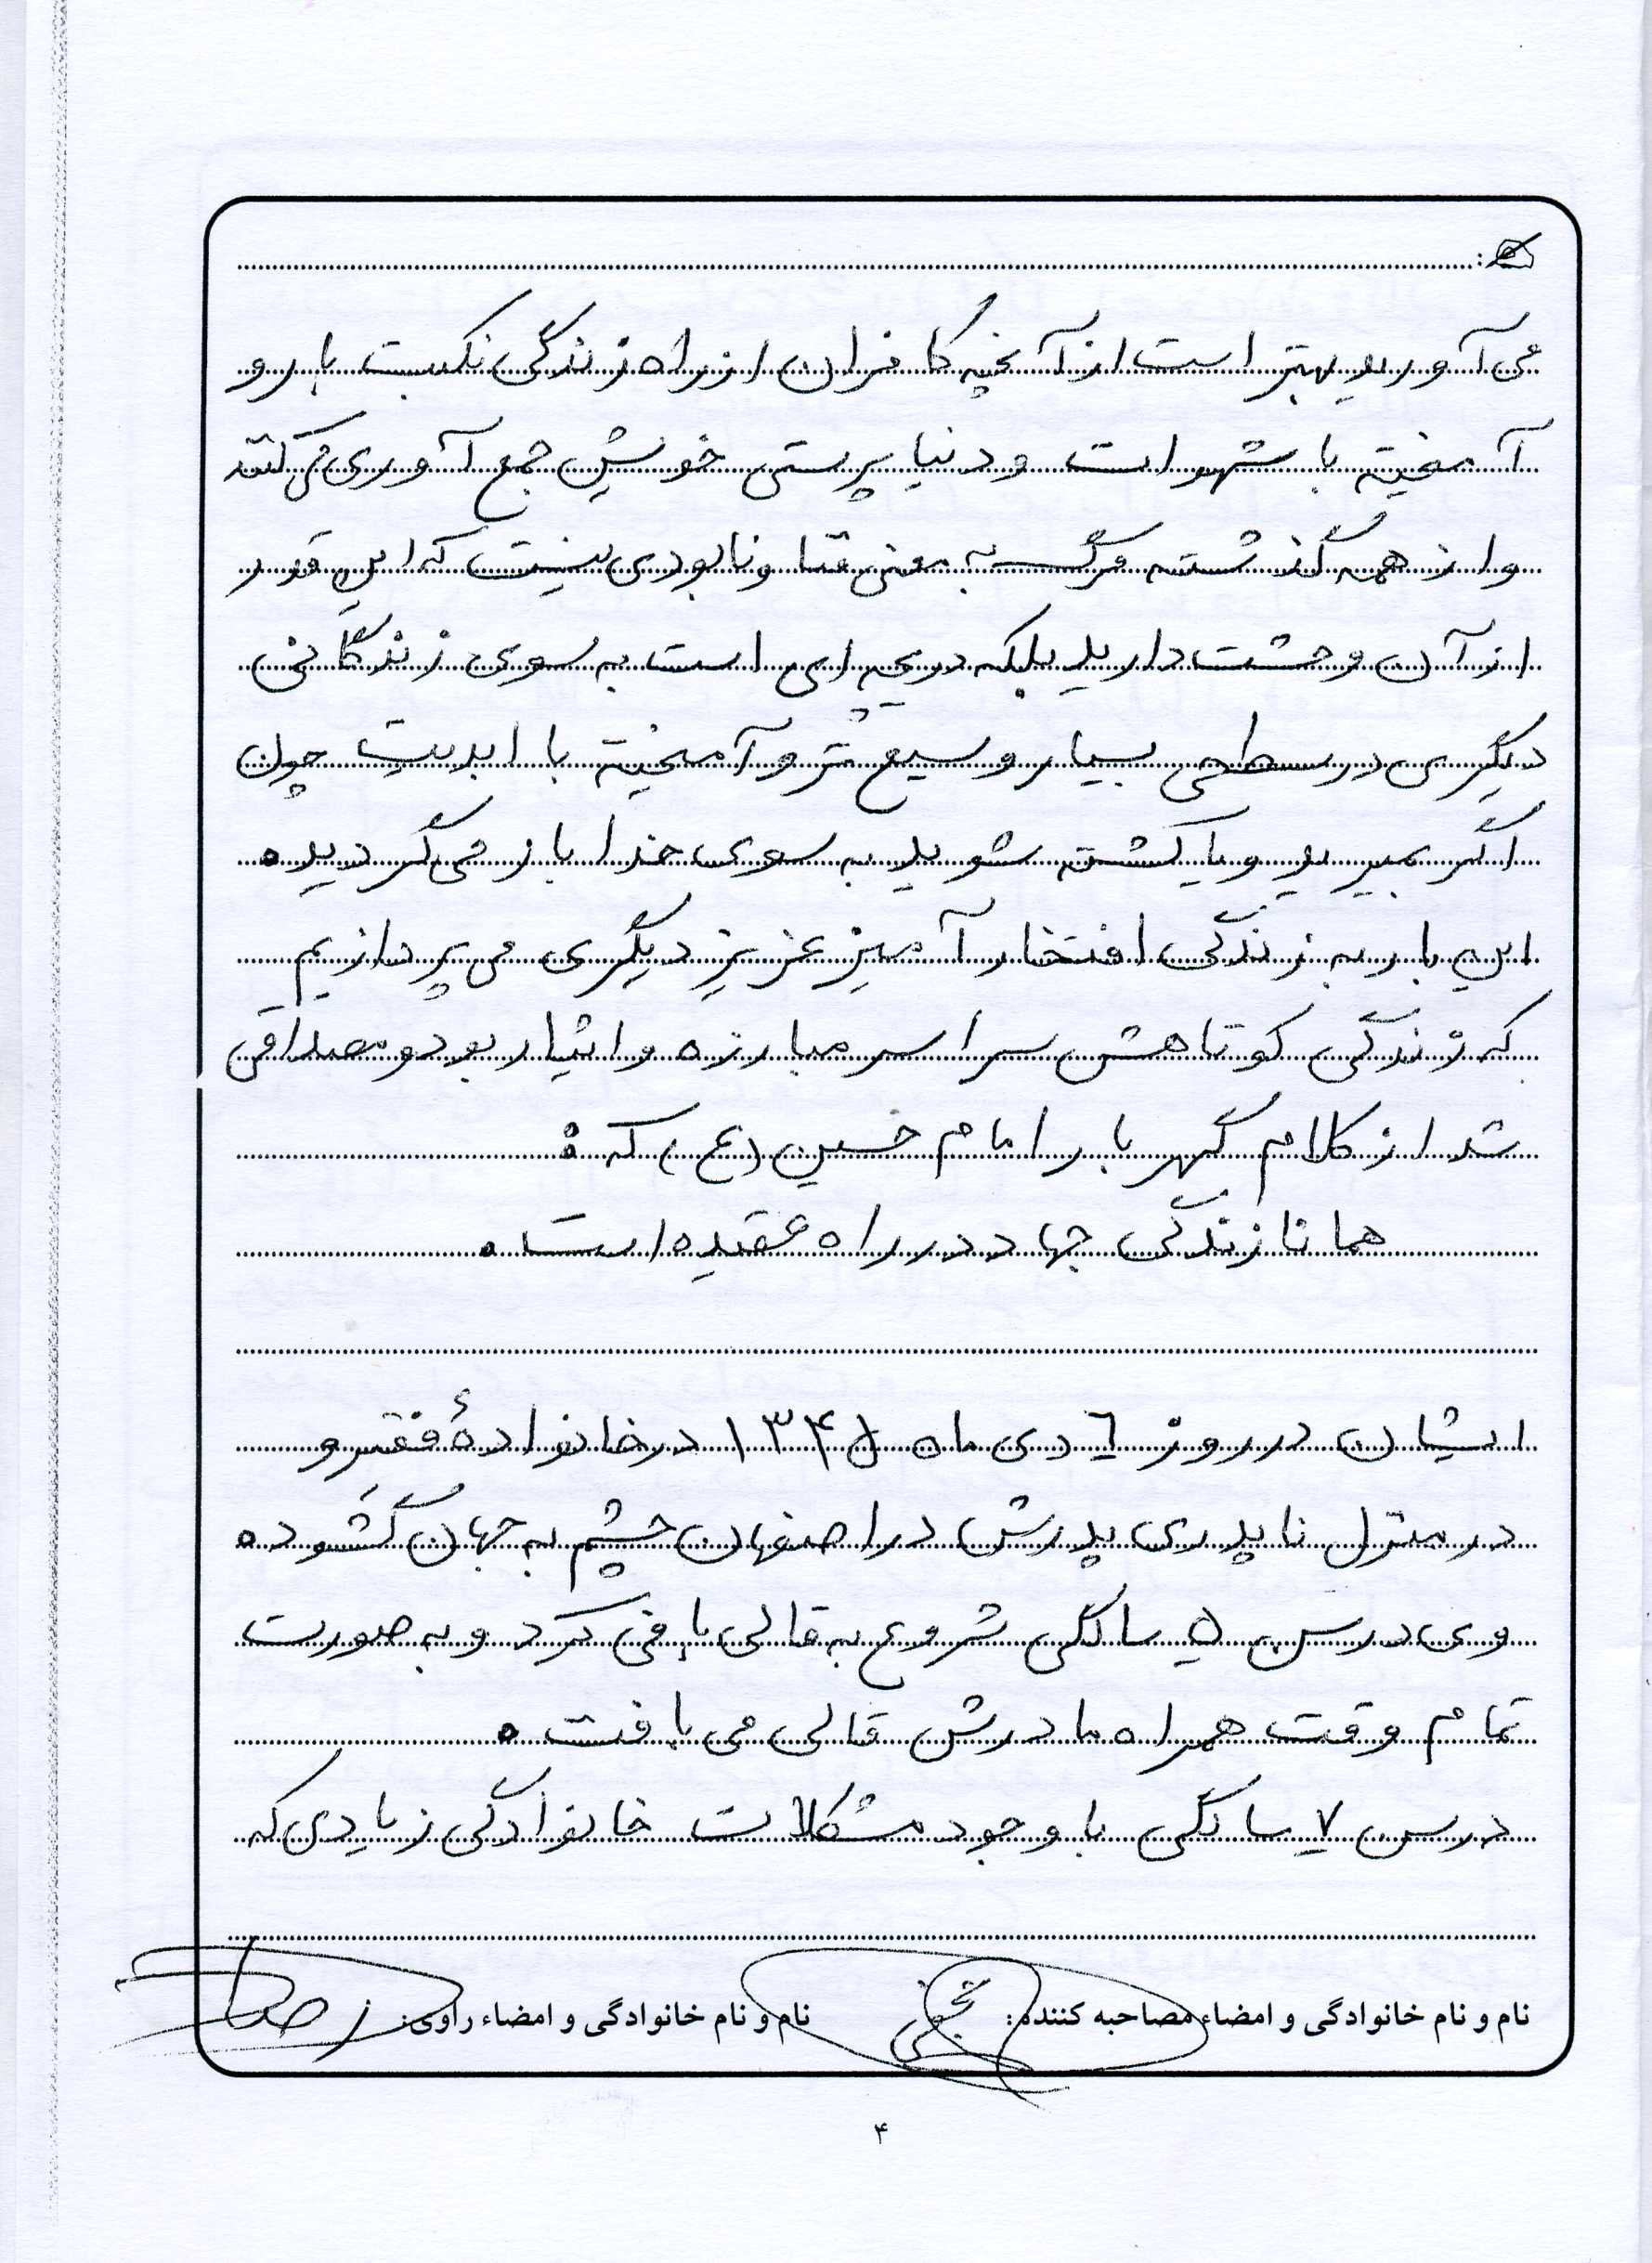 می آورید بهتر است از آنچه کافران از راه زندگی نکبت بار و
آمیخته با شهوات و دنیا پرستی خویش جمع آوری می کنند
و از همه گذشته مرگ به معنی فنا و نابودی نیست که این قدر
از آن وحشت دارید بلکه دریچه ای است به سوی زندگانی
دیگری در سطحی بسیار وسیع تر و آمیخته با ابدیت چون
اگر بمیرید و یا کشته شوید به سوی خدا باز می گردید.
این بار به زندگی افتخار آمیز عزیز دیگری می پردازیم
که زندگی کوتاهش سراسر مبارزه و ایثار بود و مصداقی
شد از کلام گهر بار امام حسین (ع) که :
همانا زندگی جهاد در راه عقیده است.
ایشان در روز ٦ دی ماه ۱۳۴۵ در خانوادهٔ فقیر و
در منزل ناپدری پدرش در اصفهان چشم به جهان گشود.
وی در سن ۵ سالگی شروع به قالی بافی کرد و به صورت
تمام وقت همراه مادرش قالی می بافت.
در سن ۷ سالگی با وجود مشکلات خانوادگی زیادی که
نام و نام خانوادگی و امضاء مصاحبه کننده: نام و نام خانوادگی و امضاء راوی:
۴